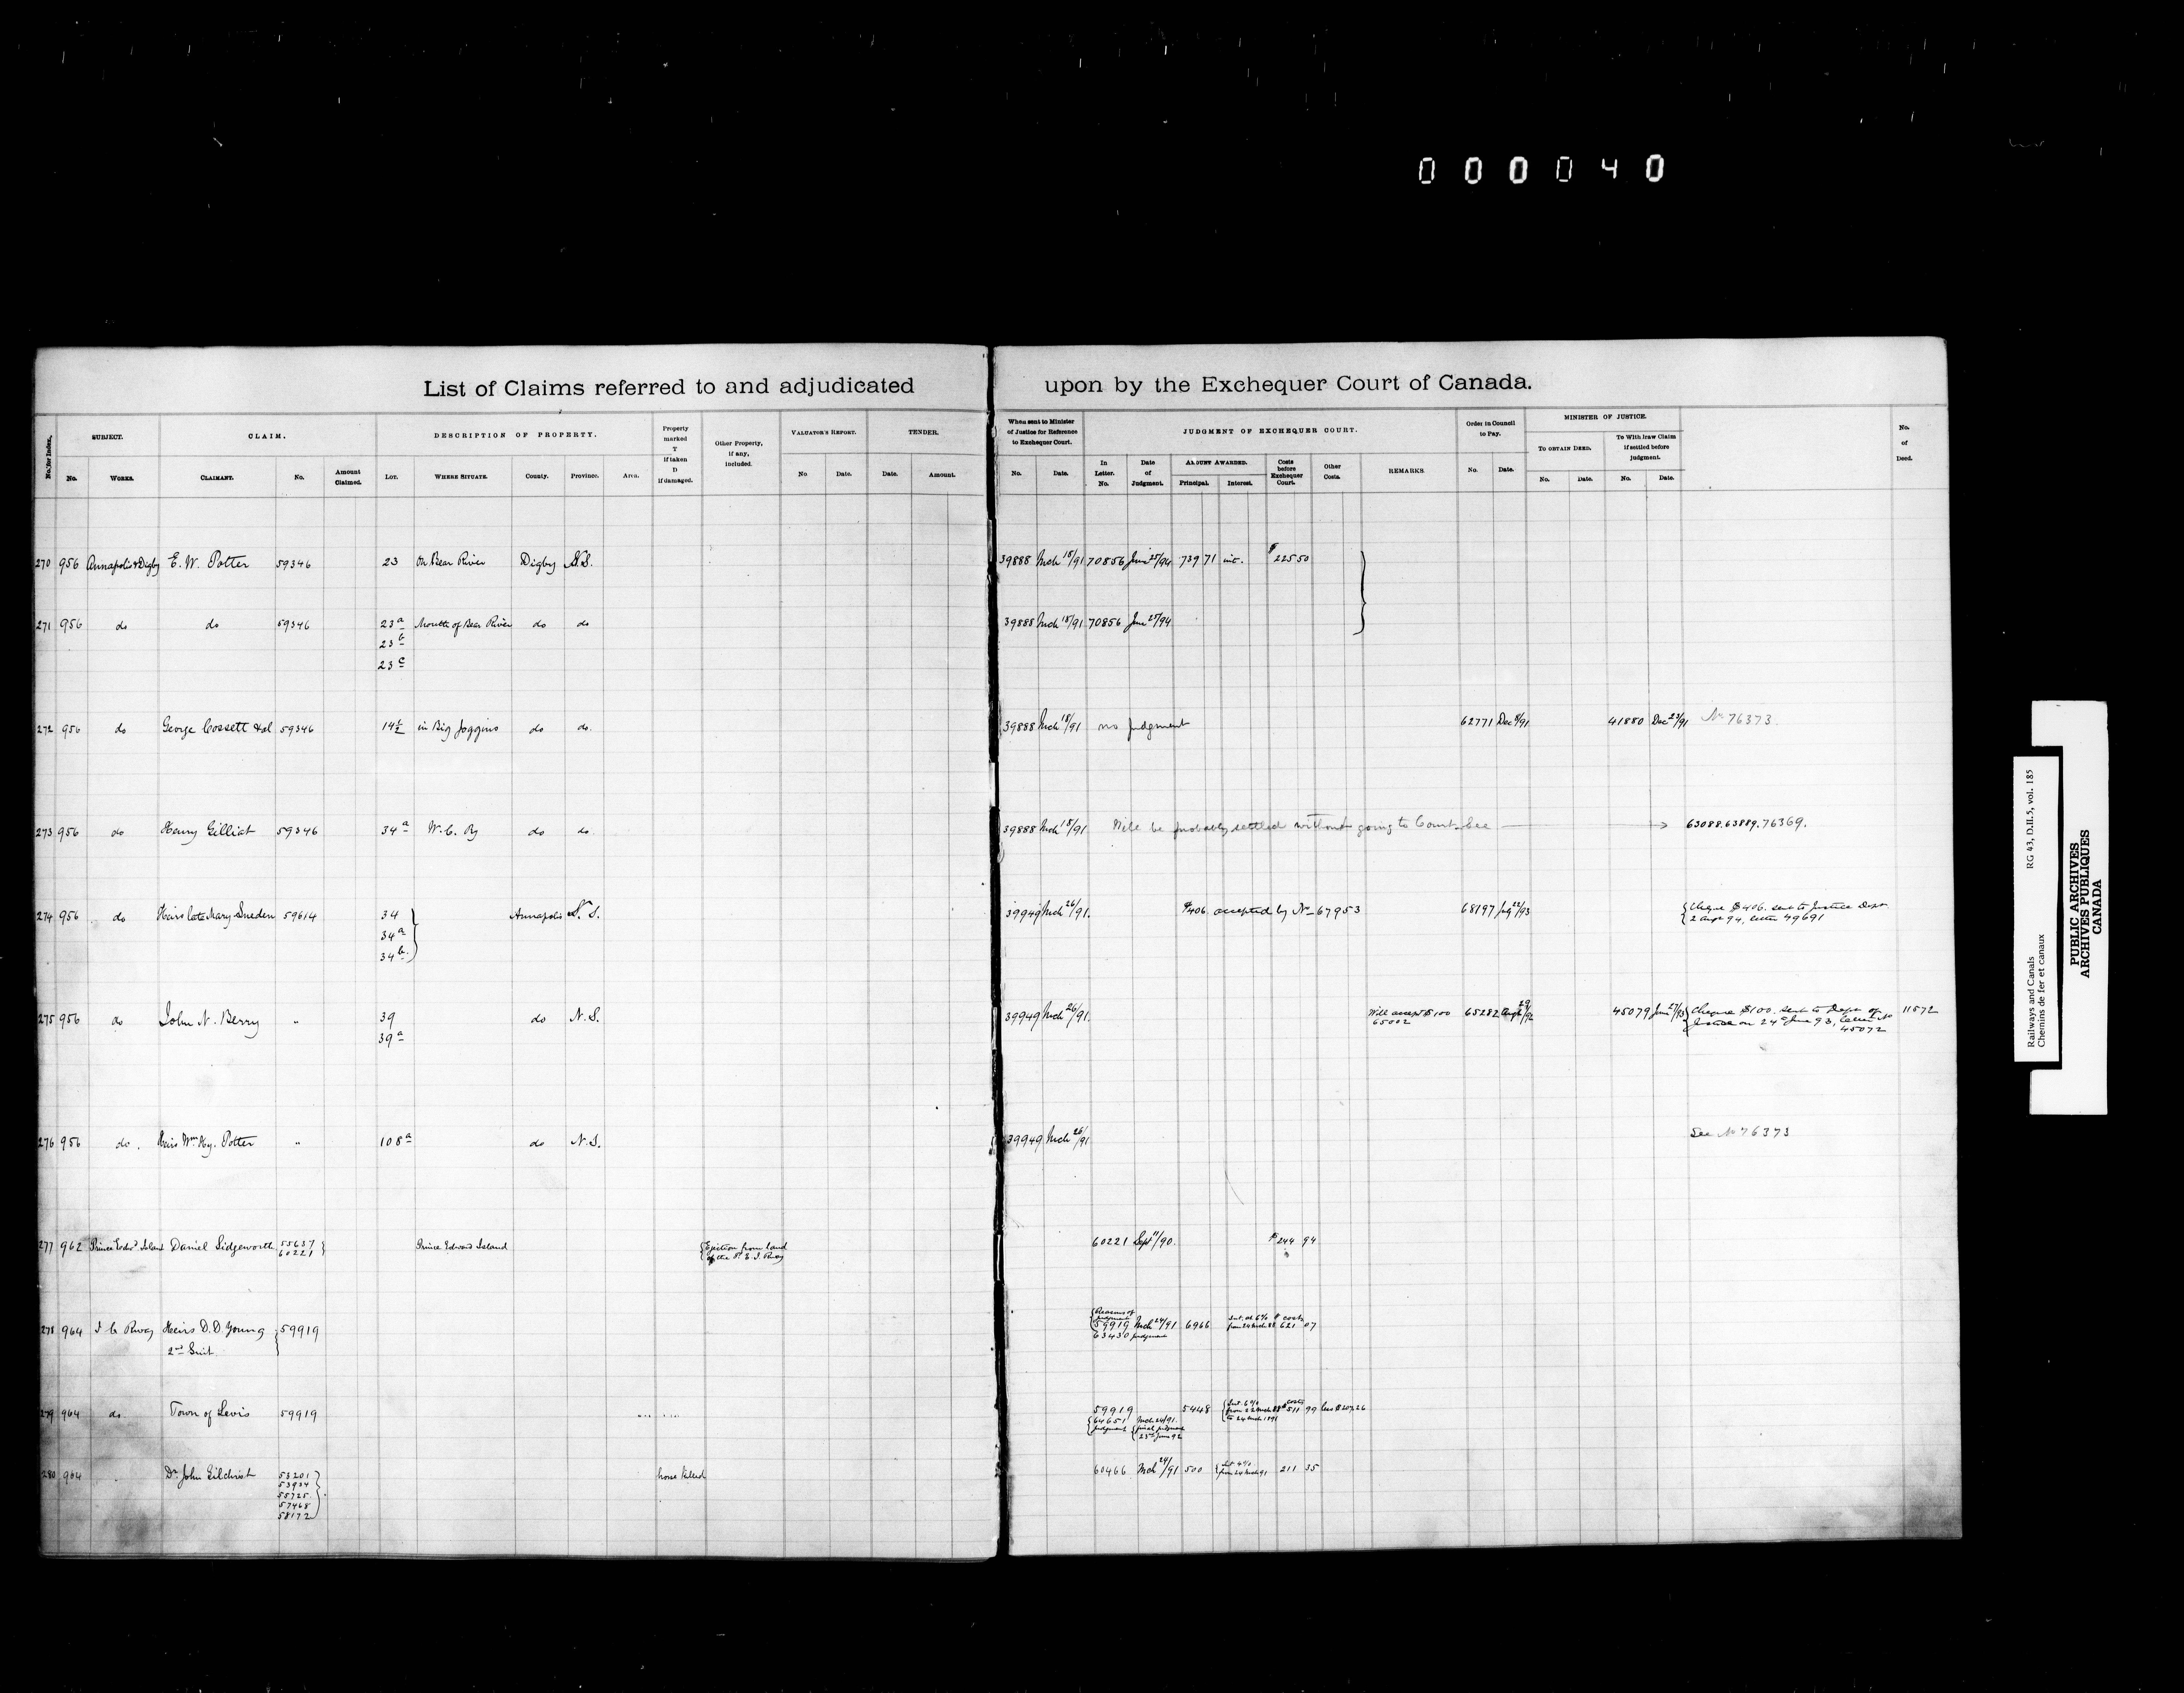 000040
List of Claims referred to and adjudicated upon by the Exchequer Court of Canada.
No. for Index.
SUBJECT.
No. WORKS.
CLAIM.
CLAIMANT. No. Amount Claimed.
DESCRIPTION OF PROPERTY.
LOT. WHERE SITUATE. County. Province. Area.
Property marked T if taken D if damaged.
Other Property, if any, included.
VALUATOR'S REPORT.
No Date.
TENDER.
Date. Amount.
When sent to Minister of Justice for Reference to Exchequer Court.
No. Date.
JUDGMENT OF EXCHEQUER COURT.
In Letter. No. Date of Judgment. AMOUNT AWARDED. Principal. Interest. Costs before Exchequer Court. Other Costs. REMARKS.
Order in Council to Pay.
No. Date.
MINISTER OF JUSTICE.
TO OBTAIN DEED. No. Date.
To Withdraw Claim if settled before judgment. No. Date.
No. of Deed.
270 956 Annapolis & Digby E. W. Potter 59346 23 On Bear River Digby N.S. 39888 Mch 18/91 70856 June 25/94 739 71 inc. $ 225 50
271 956 do do 59346 23a Mouth of Bear River do do 39888 Mch 18/91 70856 June 25/94
23b
23c
272 956 do George Cossett & al 59346 in Big Joggins do do. 39888 Mch 18/91 no judgment 62771 Dec 8/91 41880 Dec 23/91 No 76373.
273 956 do Henry Gilliat 59346 34a W. C. Ry do do 39888 Mch 18/91 Will be probably settled without going to Court. See 63088.63889.76369.
274 956 do Heirs late Mary Sneden 59614 34 Annapolis N. S. 39949 Mch 26/91. $406. accepted by No 67953 68197 22/93 Cheque $406. sent to Justice Dept
34a 2 Augt 94, letter 49691
34b
275 956 do John N. Berry " 39 do N.S. 39949 Mch 26/91. Will accept $100 65282 Augt 29/92 45079 June 27/93 Cheque $100. sent to Dept of 11572
39a 65002 Justice on 24th June 93, letter No
45072
276 956 do. Heirs Wm Hy. Potter " 108a do N.S. 39949 Mch 26/91 See No 76373
277 962 Prince Edwd Island Daniel Sidgeworth 55637 Prince Edward Island Ejection from land 60221 Sept 11/90. $244 94
60221 of the P. E. I. Rway
278 964 I C Rway Heirs D. D. Young 59919 Reasons of judgment 59919 Mch 24/91 6966 Int. at 6% from 24 Mch 88 $ costs 621 07
2nd Suit. 63430 judgment
279 964 do Town of Levis 59919 59919 5448 Int. 6% from 22 Mch 88 to 24 Mch 1891 costs 511 99 less $207.26
64651 Mch 24/91.
judgment final judgment
23rd June 92
280 964 Dr. John Gilchrist 53201 horse killed 60466 Mch 24/91 500 Int 4% from 24 Mch 91 211 35
53934
55725.
57468
58172
Railways and Canals RG 43, D.II.5, vol. 185
Chemins de fer et canaux
PUBLIC ARCHIVES
ARCHIVES PUBLIQUES
CANADA